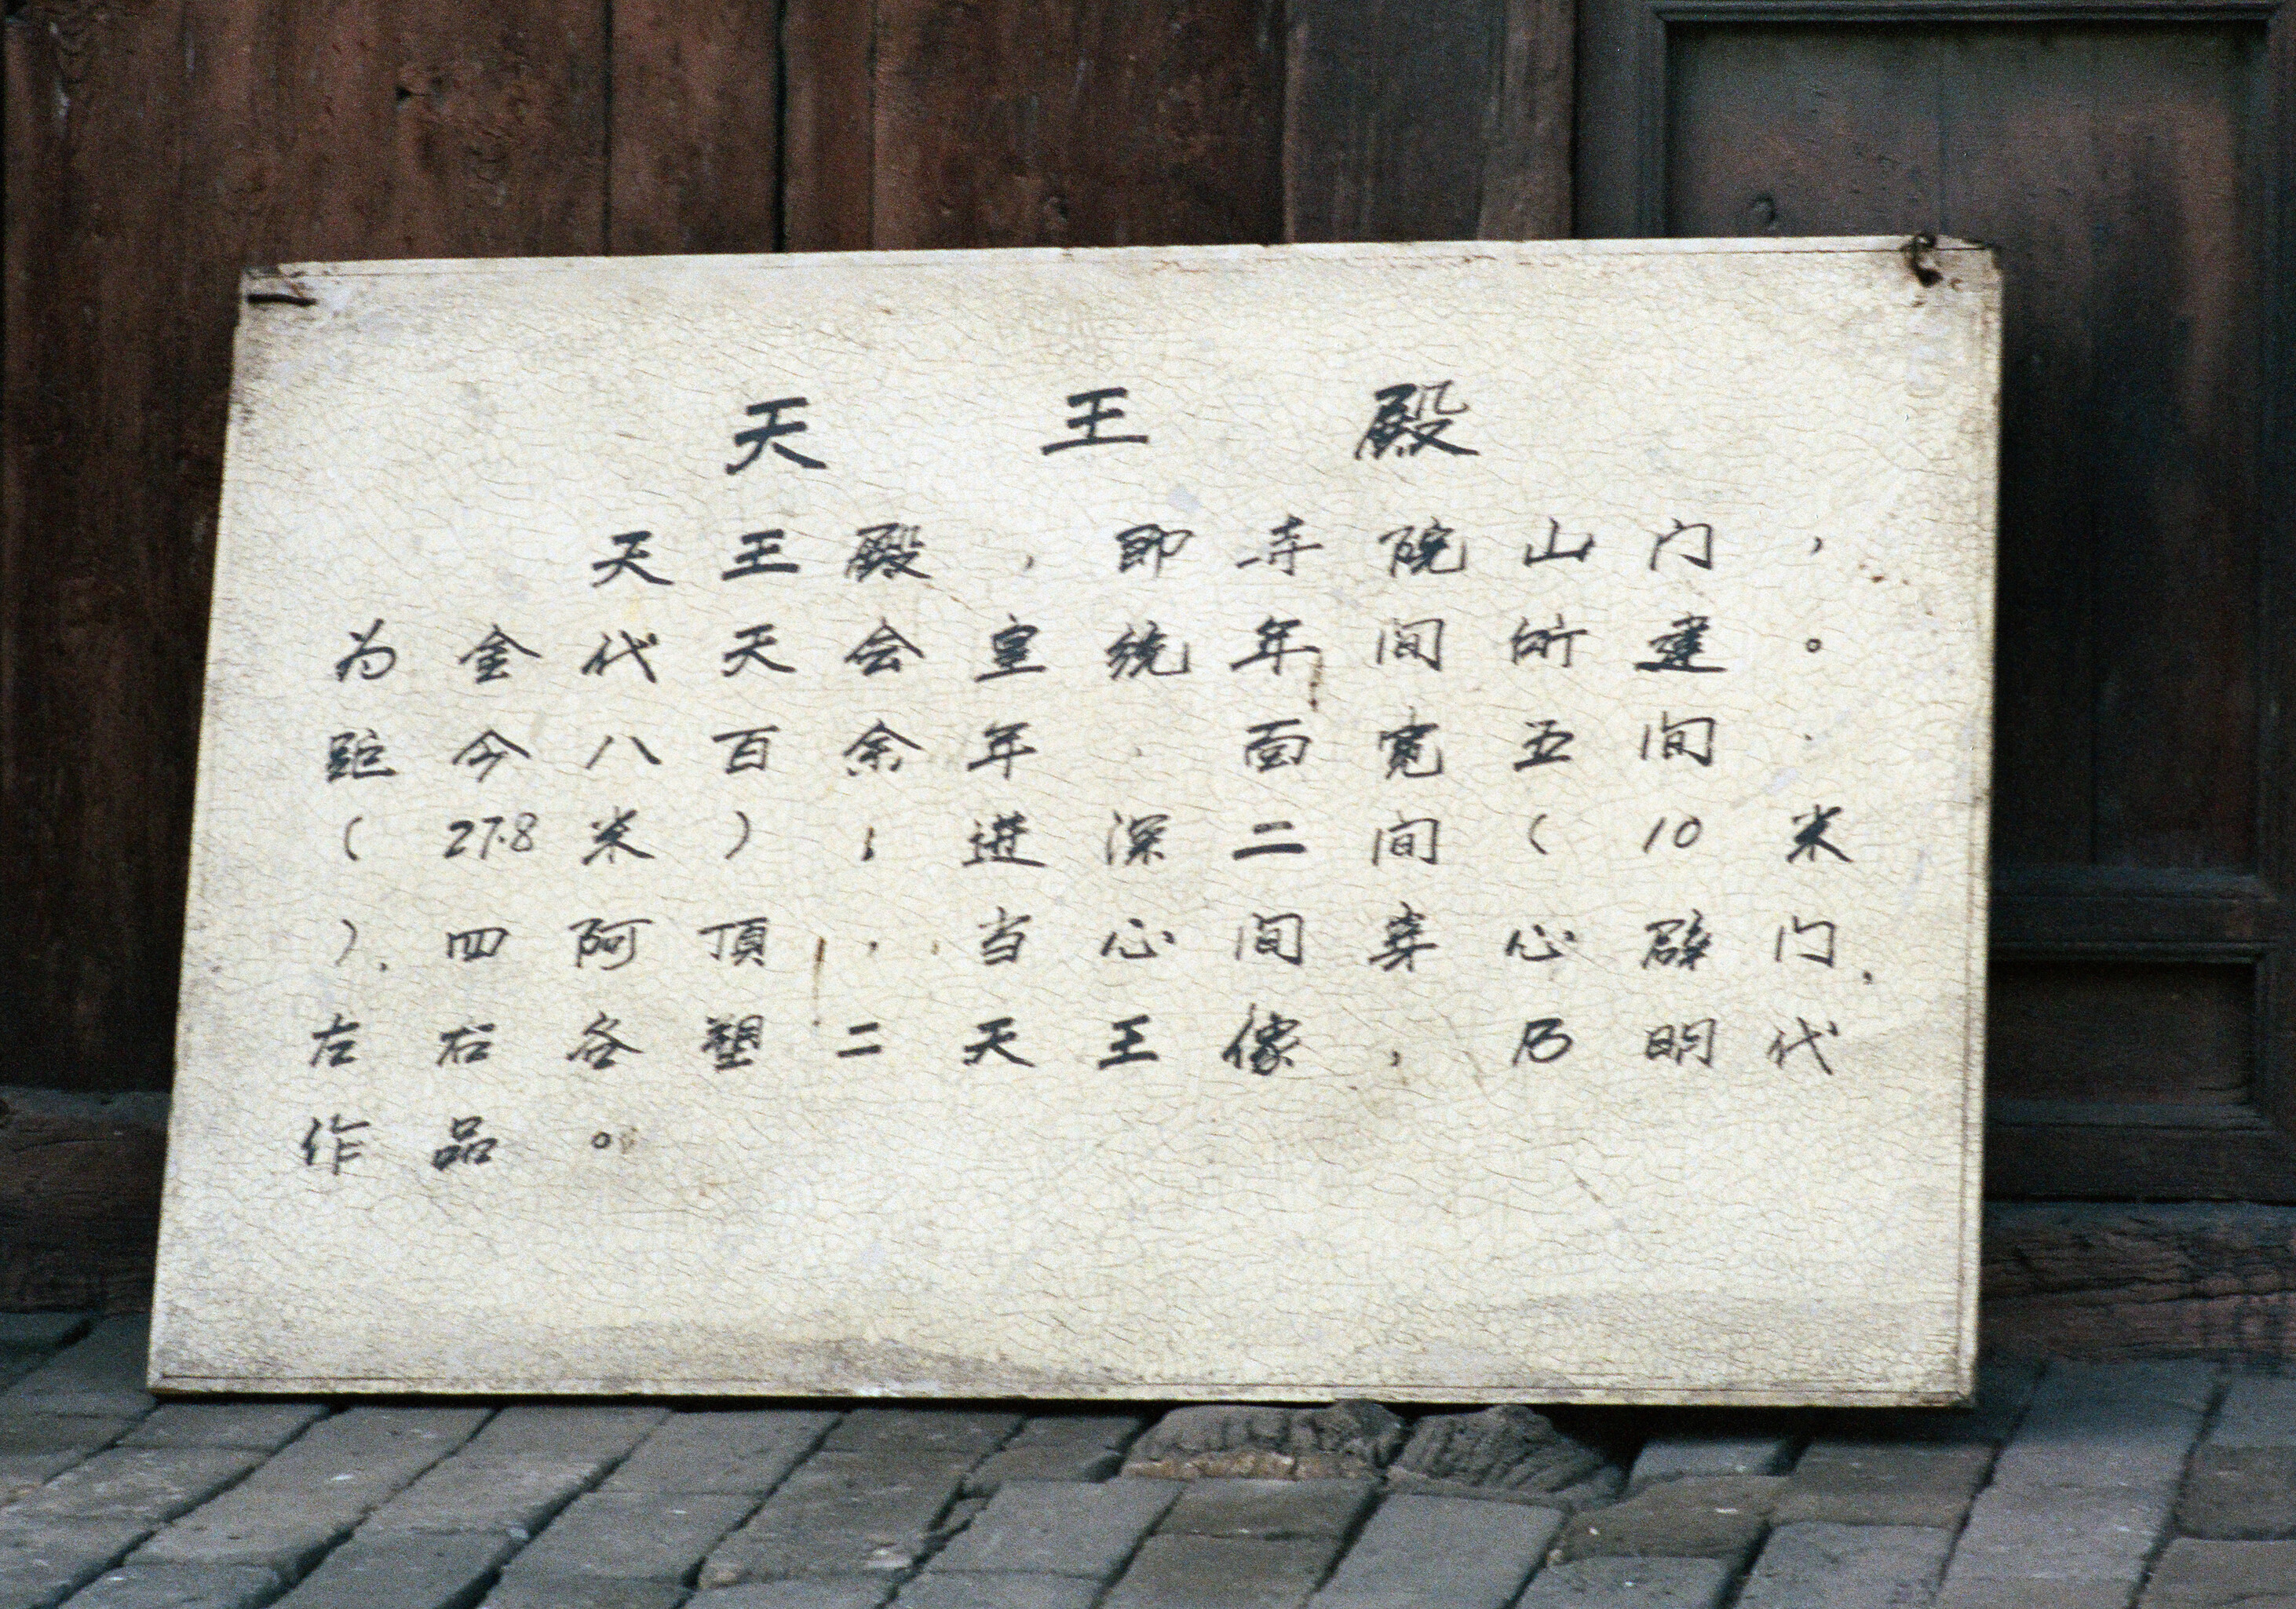 天王殿
天王殿，即寺院山门，
为金代天会皇统年间所建。
距今八百余年，面宽五间，
（27.8米），进深二间（10米
）.四阿顶，当心间穿心辟门，
左右各塑二天王像，乃明代
作品。